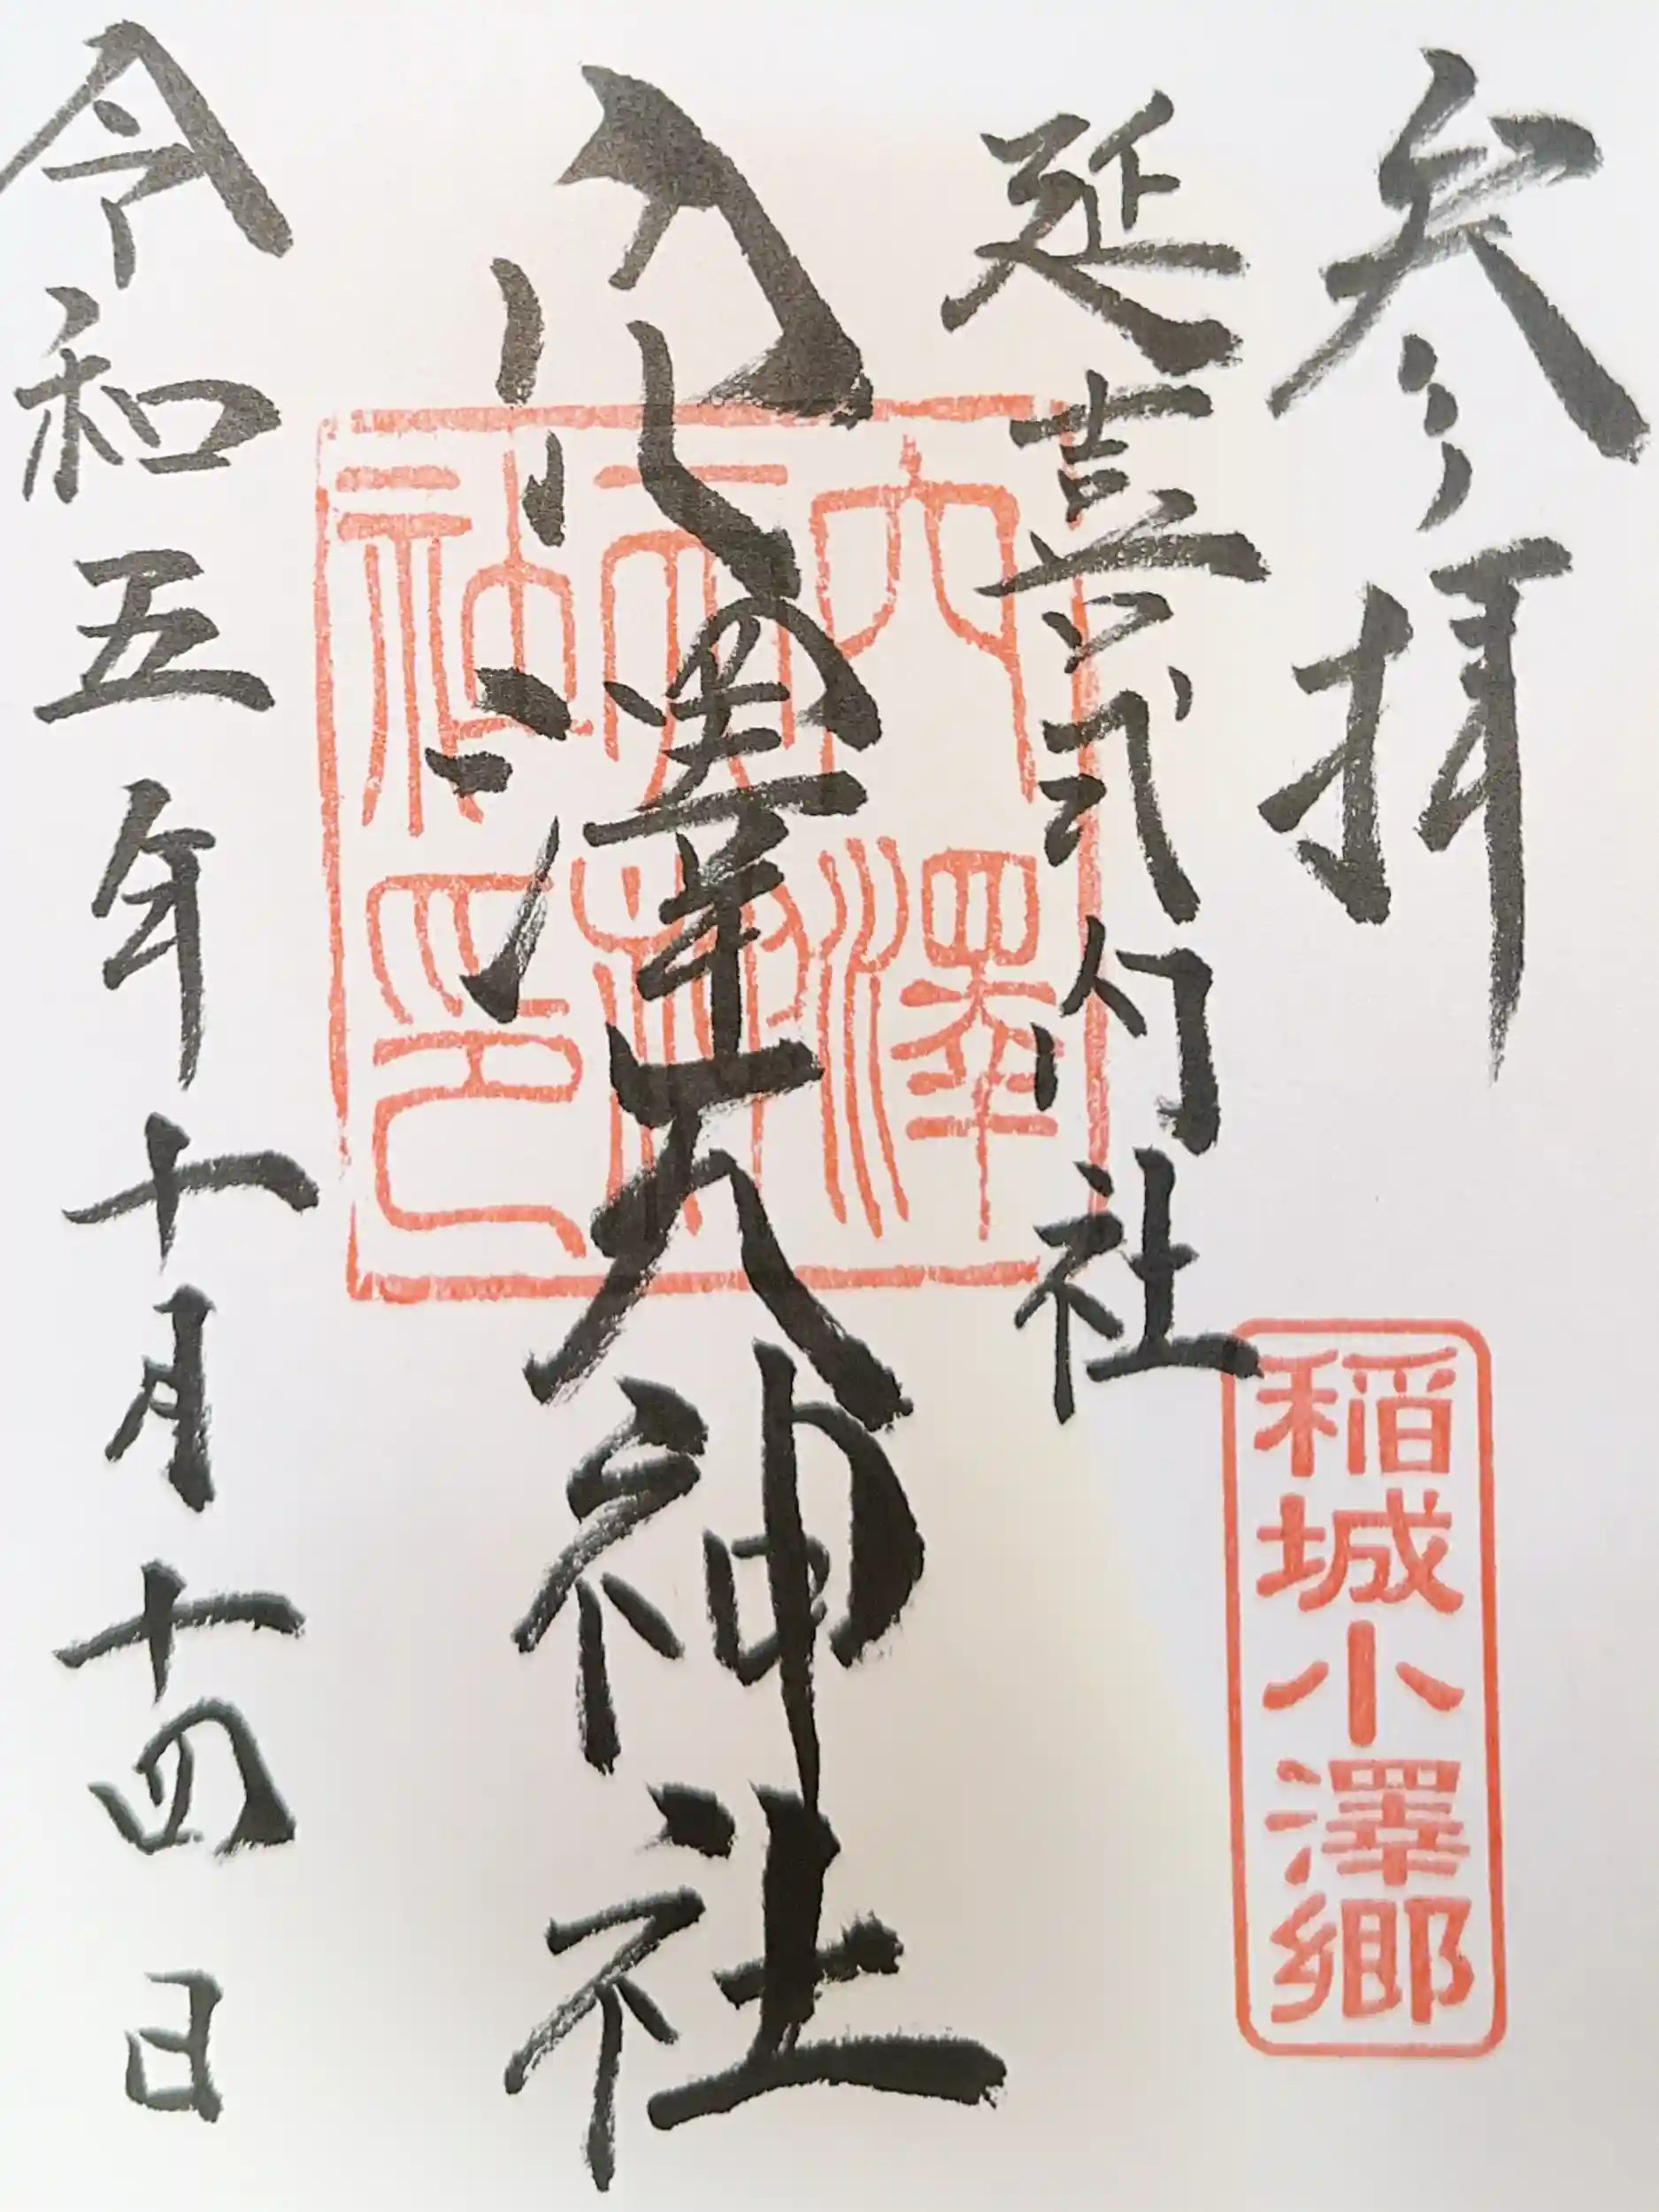 参拝
稲城小澤郷
延喜式内社
穴澤天神社
穴澤
天神
社印
令和五年十月十四日